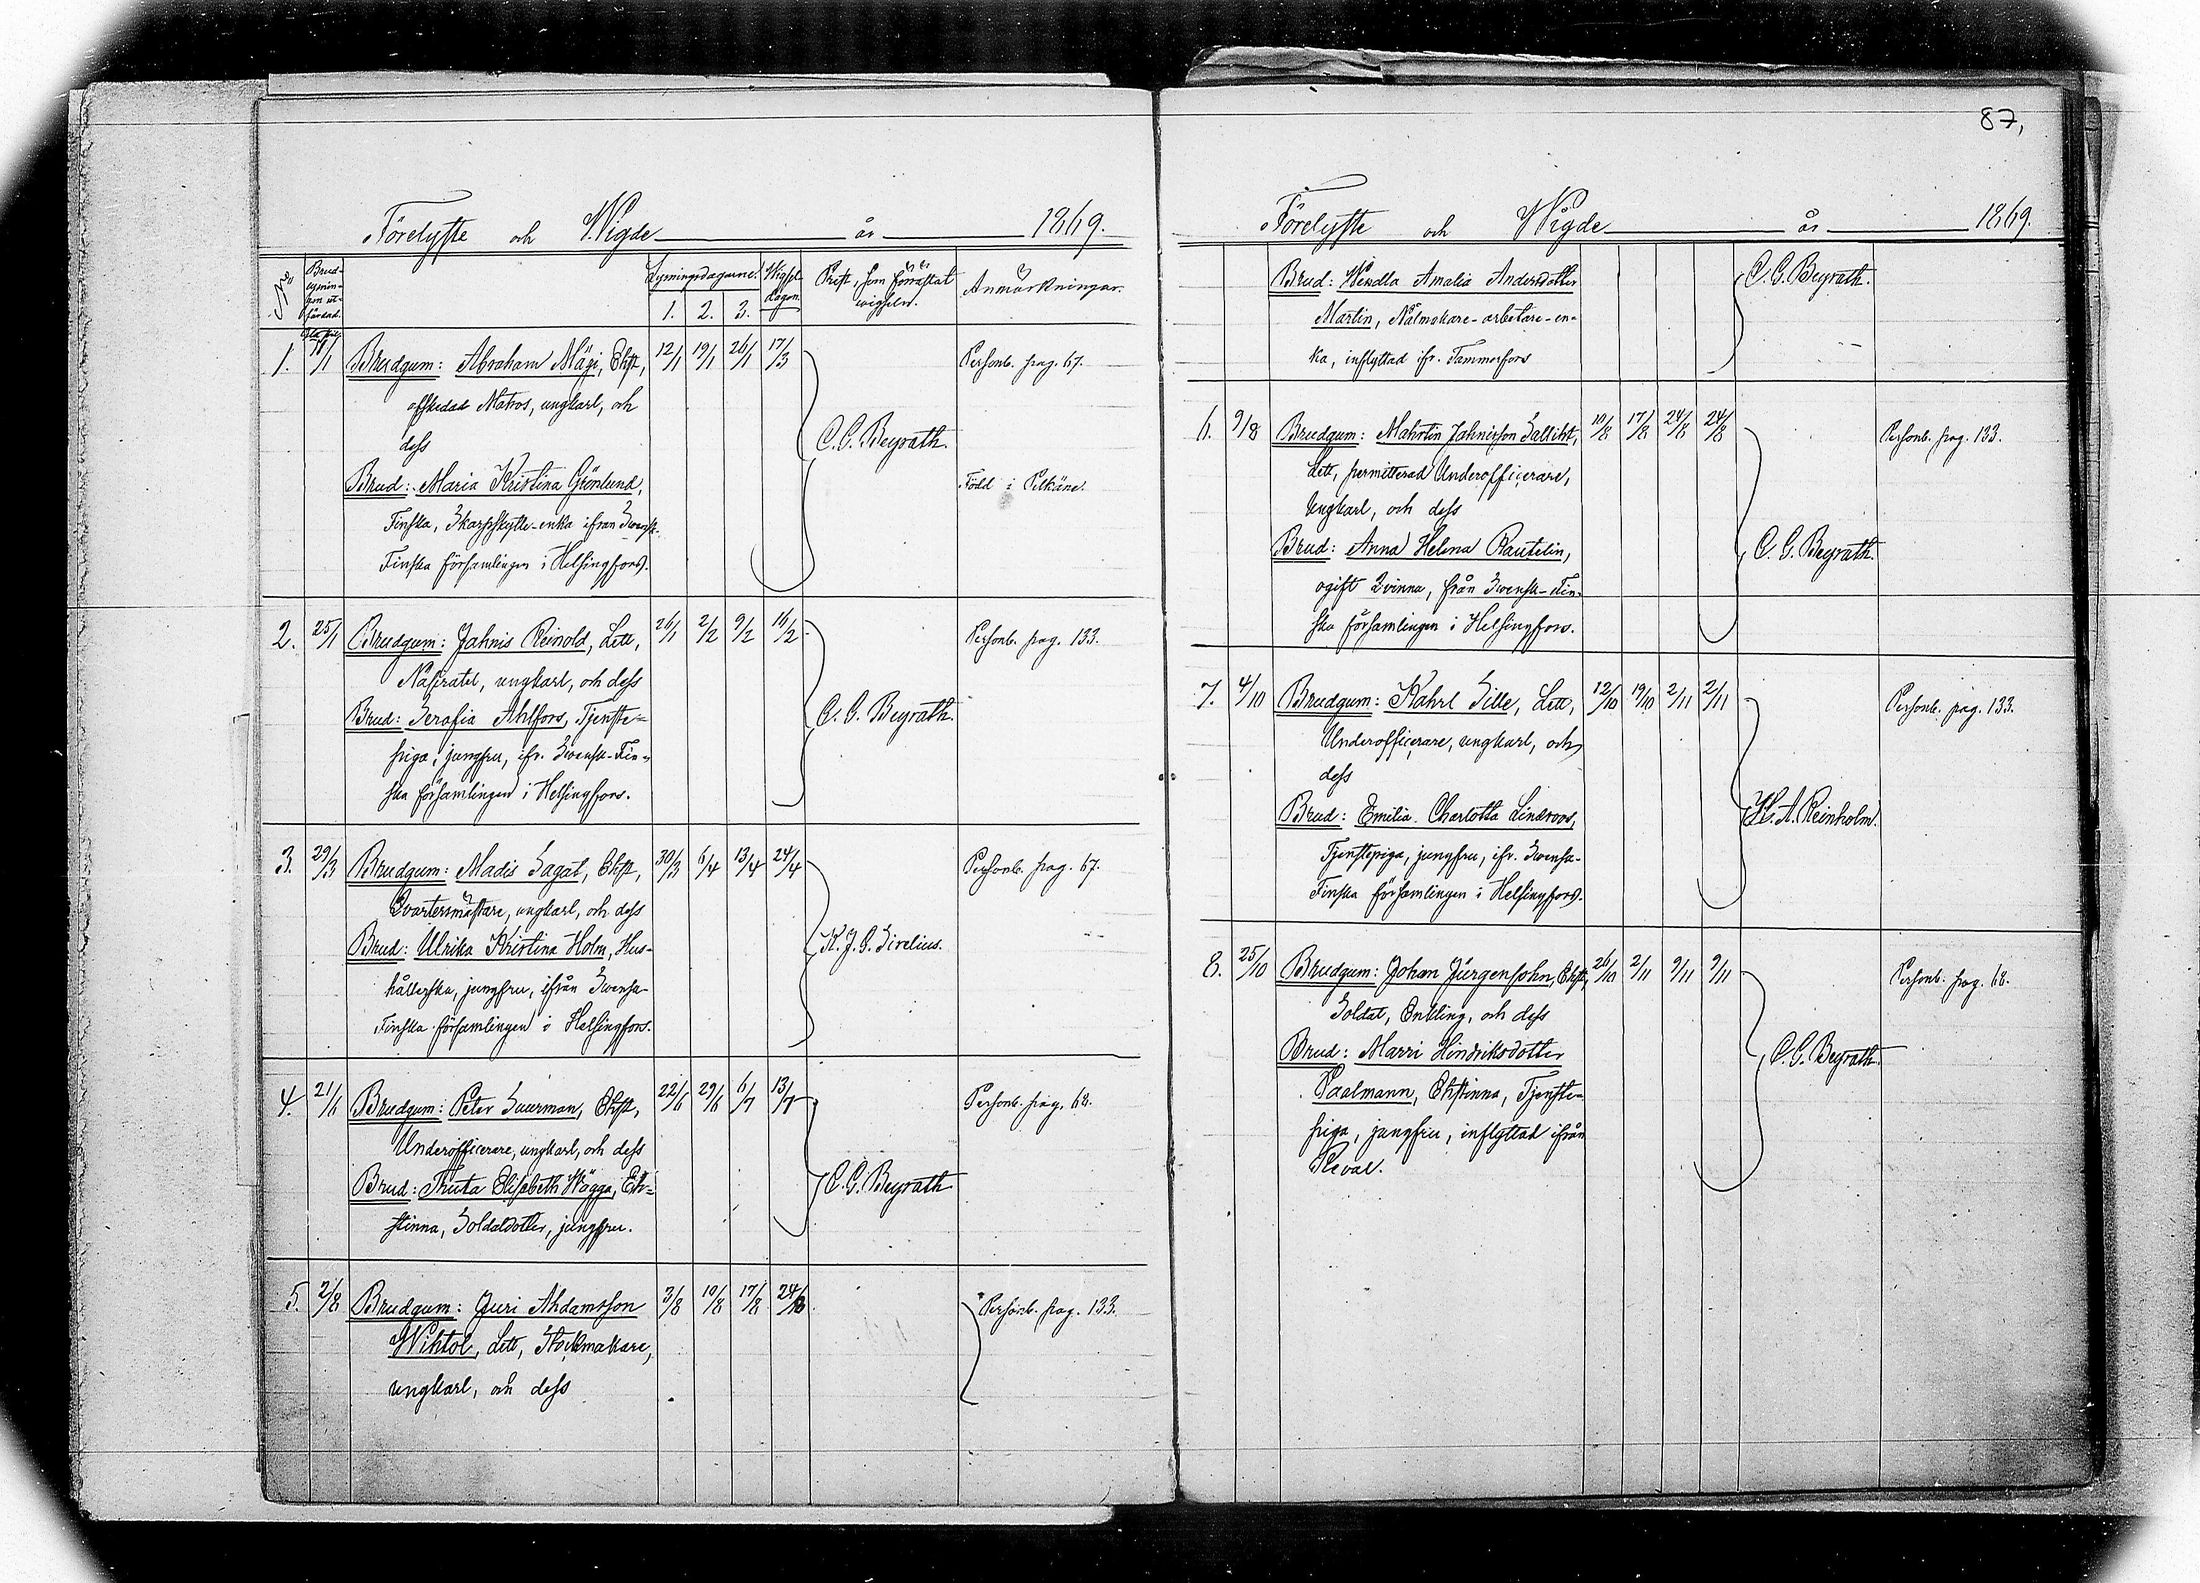 87,
Förelyste och Wigde år 1869.
No Brud- Lysningsdagarne. Wigsel- Prest, som förrättat Anmärkningar.
lysnin- 1. 2. 3. dagen. wigseln.
gen ut-
färdad.
1. 11/1 Brudgum: Abraham Mägi, Ehst, 12/1 19/1 26/1 17/3 Personb. pag. 67.
afskedad Matros, ungkarl, och
dess C. G. Beyrath.
Brud: Maria Kristina Grönlund, Född i Pelkäne.
Finska, Skarpskytte-enka ifrån Svensk-
Finska församlingen i Helsingfors.
2. 25/1 Brudgum: Jahnis Reinold, Lett, 26/1 2/2 9/2 16/2 Personb. pag. 133.
ungkarl, och dess
Brud: Serafia Ahlfors, Tjenste- C. G. Beyrath.
piga, jungfru, ifr. Svensk-Fin-
ska församlingen i Helsingfors.
3. 29/3 Brudgum: Madis Sagat, Ehst, 30/3 6/4 13/4 24/4 Personb. pag. 67.
Qvartersmästare, ungkarl, och dess
Brud: Ulrika Kristina Holm, Hus- K. J. G. Sirelius.
hållerska, jungfru, ifrån Svensk-
Finska församlingen i Helsingfors.
4. 21/6 Brudgum: Peter Suurman, Ehst, 22/6 29/6 6/7 13/7 Personb. pag. 68.
Underofficerare, ungkarl, och dess
Brud: Truta Elisabeth Wägga, Eh- C. G. Beyrath
stinna, Soldatdotter, jungfru.
5. 2/8 Brudgum: Juri Ahdamsson 3/8 10/8 17/8 24/8 Personb. pag. 133.
Wihtol, Lett, Stockmakare,
ungkarl, och dess
Förelyste och Wigde år 1869.
Brud: Wendla Amalia Andersdotter C. G. Beyrath.
Martin, Nålmakare-arbetare-en-
ka, inflyttad ifr. Tammerfors
6. 9/8 Brudgum: Mahrtin Jahnisson Salliht, 10/8 17/8 24/8 24/8 Personb. pag. 133.
Lett, permitterad Underofficerare,
Ungkarl, och dess
Brud: Anna Helena Rautelin, C. G. Beyrath.
ogift Qvinna, från Svensk-Fin-
ska församlingen i Helsingfors.
7. 4/10 Brudgum: Kahrl Sille, Lett, 12/10 19/10 2/11 2/11 Personb. pag. 133.
Underofficerare, ungkarl, och
dess
Brud: Emilia Charlotta Lindroos, H. A. Reinholm.
Tjenstepiga, jungfru, ifr. Svensk-
Finska församlingen i Helsingfors.
8. 25/10 Brudgum: Johan Jürgensohn, Ehst, 26/10 2/11 9/11 9/11 Personb. pag. 68.
Soldat, Enkling, och dess
Brud: Marri Hindriksdotter C. G. Beyrath.
Paalmann, Ehstinna, Tjenste-
piga, jungfru, inflyttad ifrån
Reval.